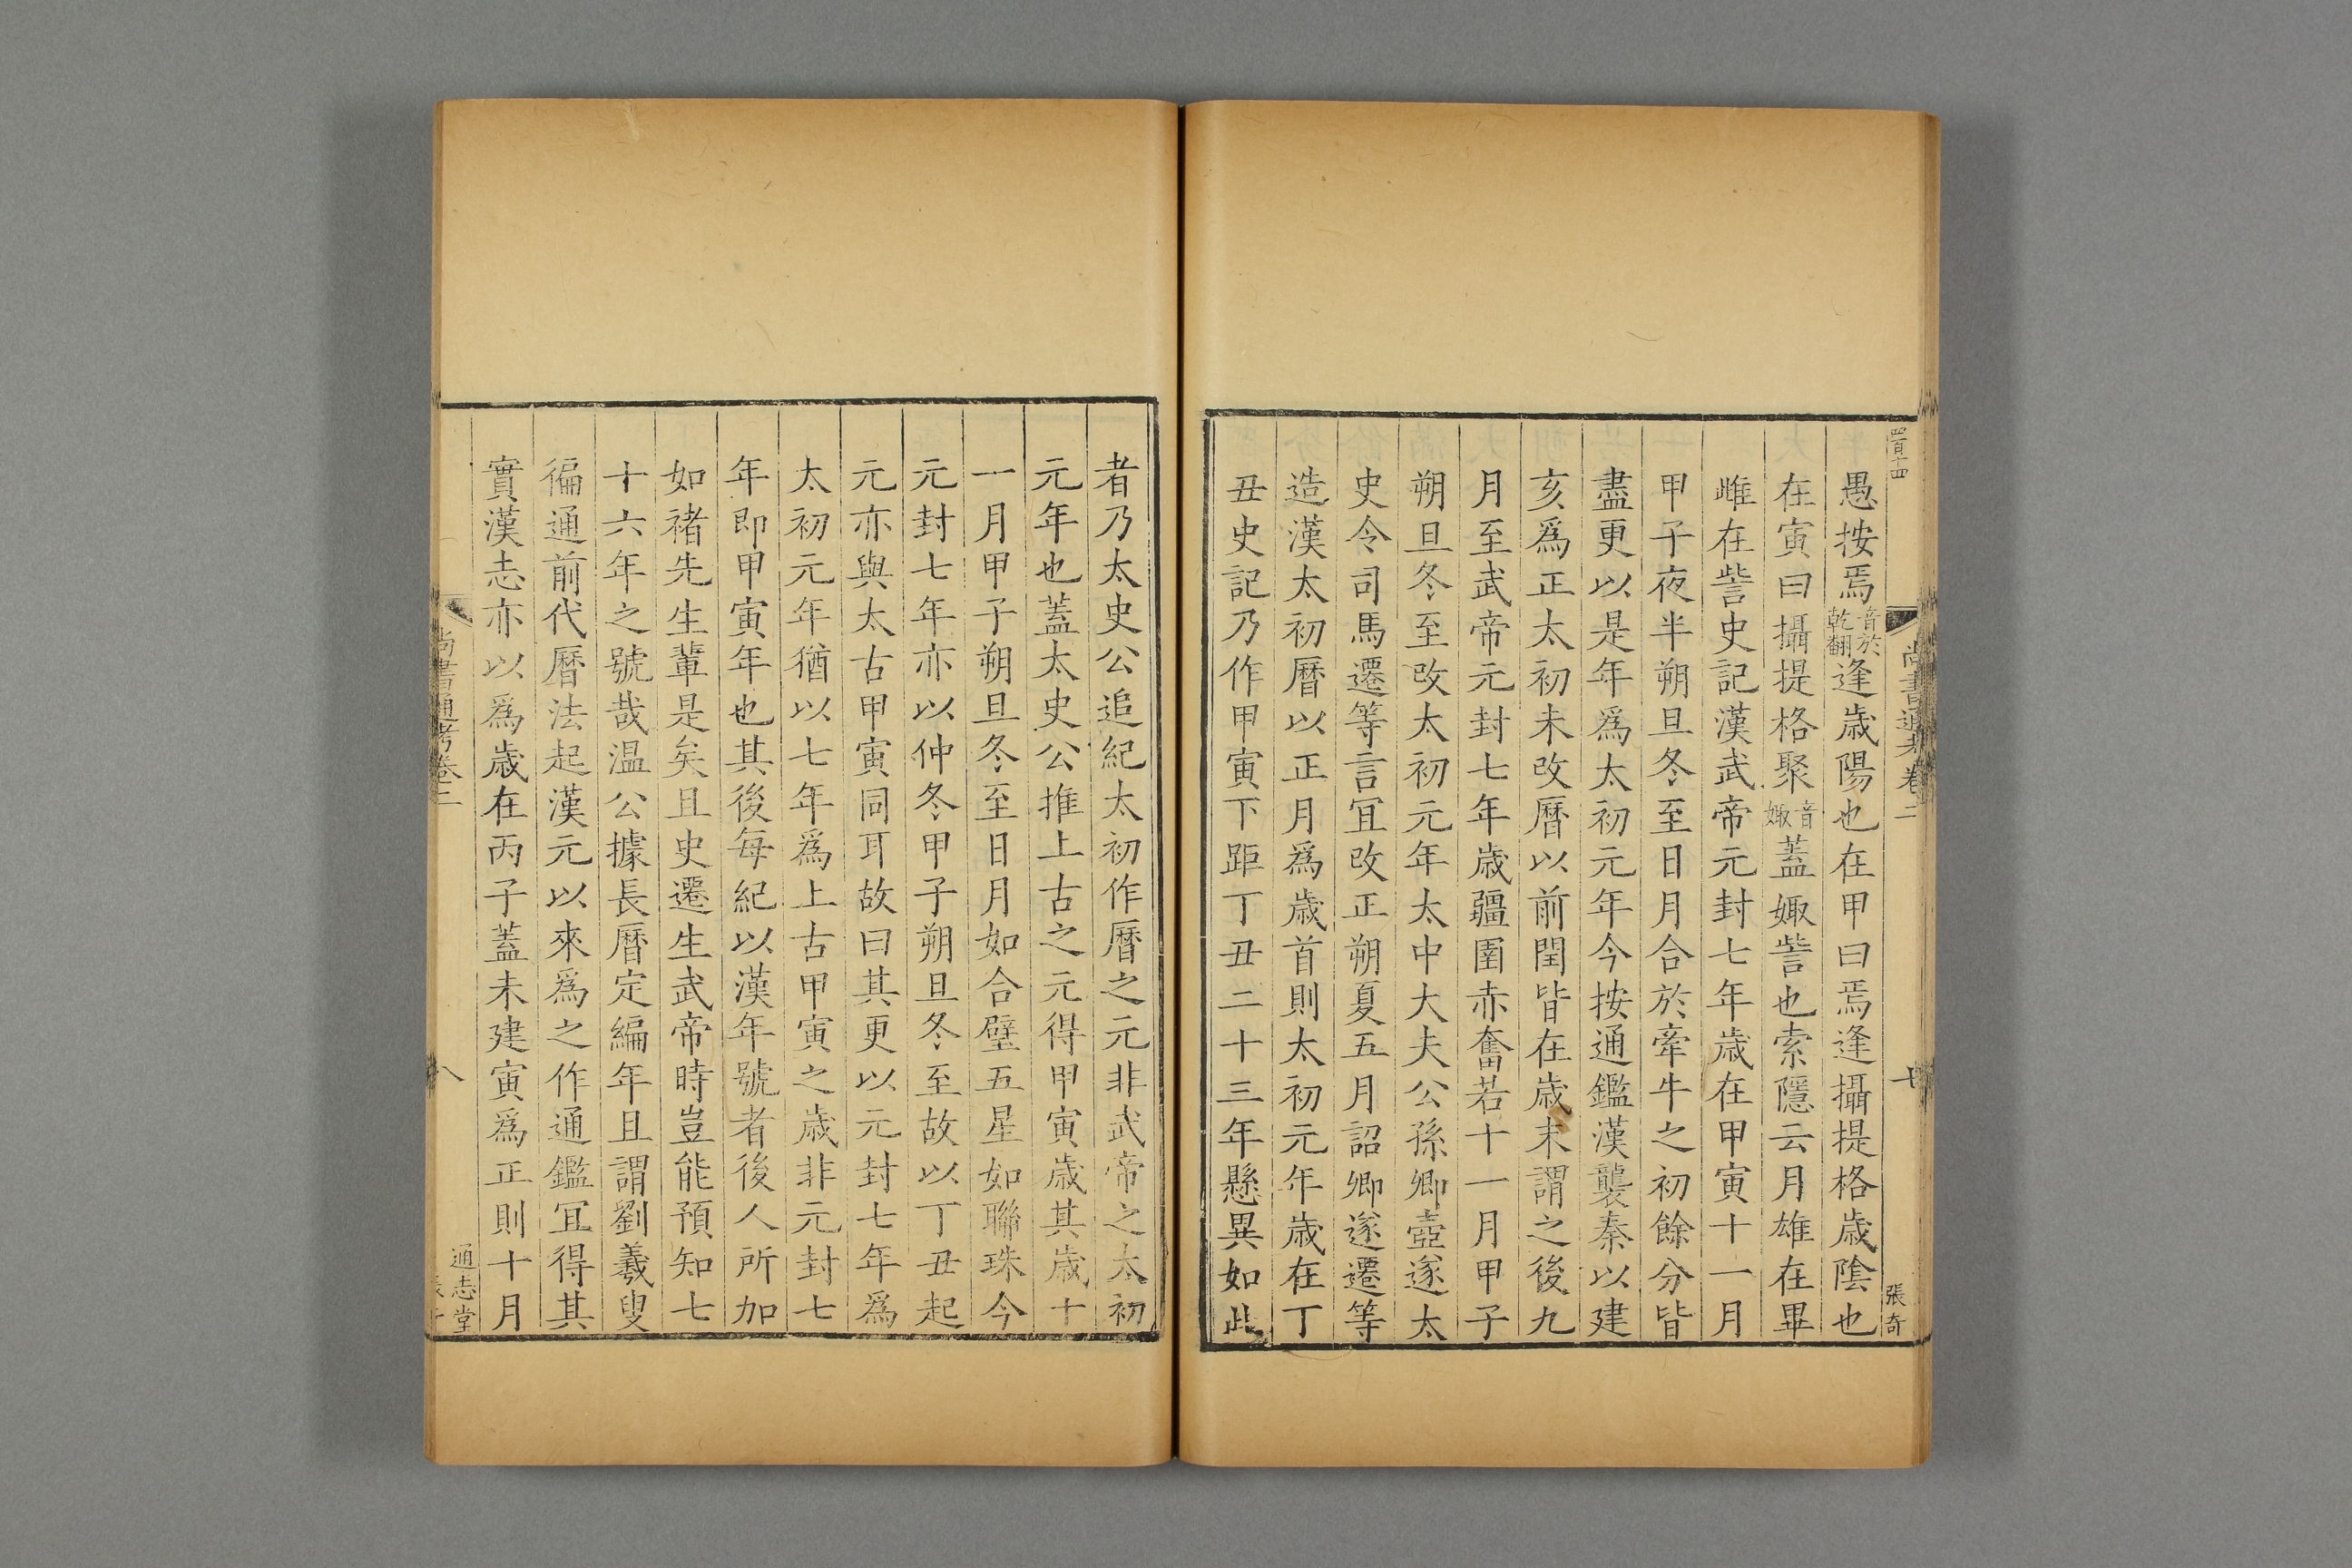 四百十四
尚書通考卷二
七
張奇
愚按焉音於乾翻逢歲陽也在甲曰焉逢攝提格歲陰也
在寅曰攝提格聚音娵蓋娵訾也索隱云月雄在畢
雌在訾史記漢武帝元封七年歲在甲寅十一月
甲子夜半朔旦冬至日月合於牽牛之初餘分皆
盡更以是年爲太初元年今按通鑑漢襲秦以建
亥爲正太初未改曆以前閏皆在歲末謂之後九
月至武帝元封七年歲疆圉赤奮若十一月甲子
朔旦冬至改太初元年太中大夫公孫卿壺遂太
史令司馬遷等言宜改正朔夏五月詔卿遂遷等
造漢太初曆以正月爲歲首則太初元年歲在丁
丑史記乃作甲寅下距丁丑二十三年懸異如此
者乃太史公追紀太初作曆之元非武帝之太初
元年也蓋太史公推上古之元得甲寅歲其歲十
一月甲子朔旦冬至日月如合璧五星如聯珠今
元封七年亦以仲冬甲子朔旦冬至故以丁丑起
元亦與太古甲寅同耳故曰其更以元封七年爲
太初元年猶以七年爲上古甲寅之歲非元封七
年即甲寅年也其後每紀以漢年號者後人所加
如褚先生輩是矣且史遷生武帝時豈能預知七
十六年之號哉温公據長曆定編年且謂劉羲叟
徧通前代曆法起漢元以來爲之作通鑑宜得其
實漢志亦以爲歲在丙子蓋未建寅爲正則十月
尚書通考卷二
八
通志堂